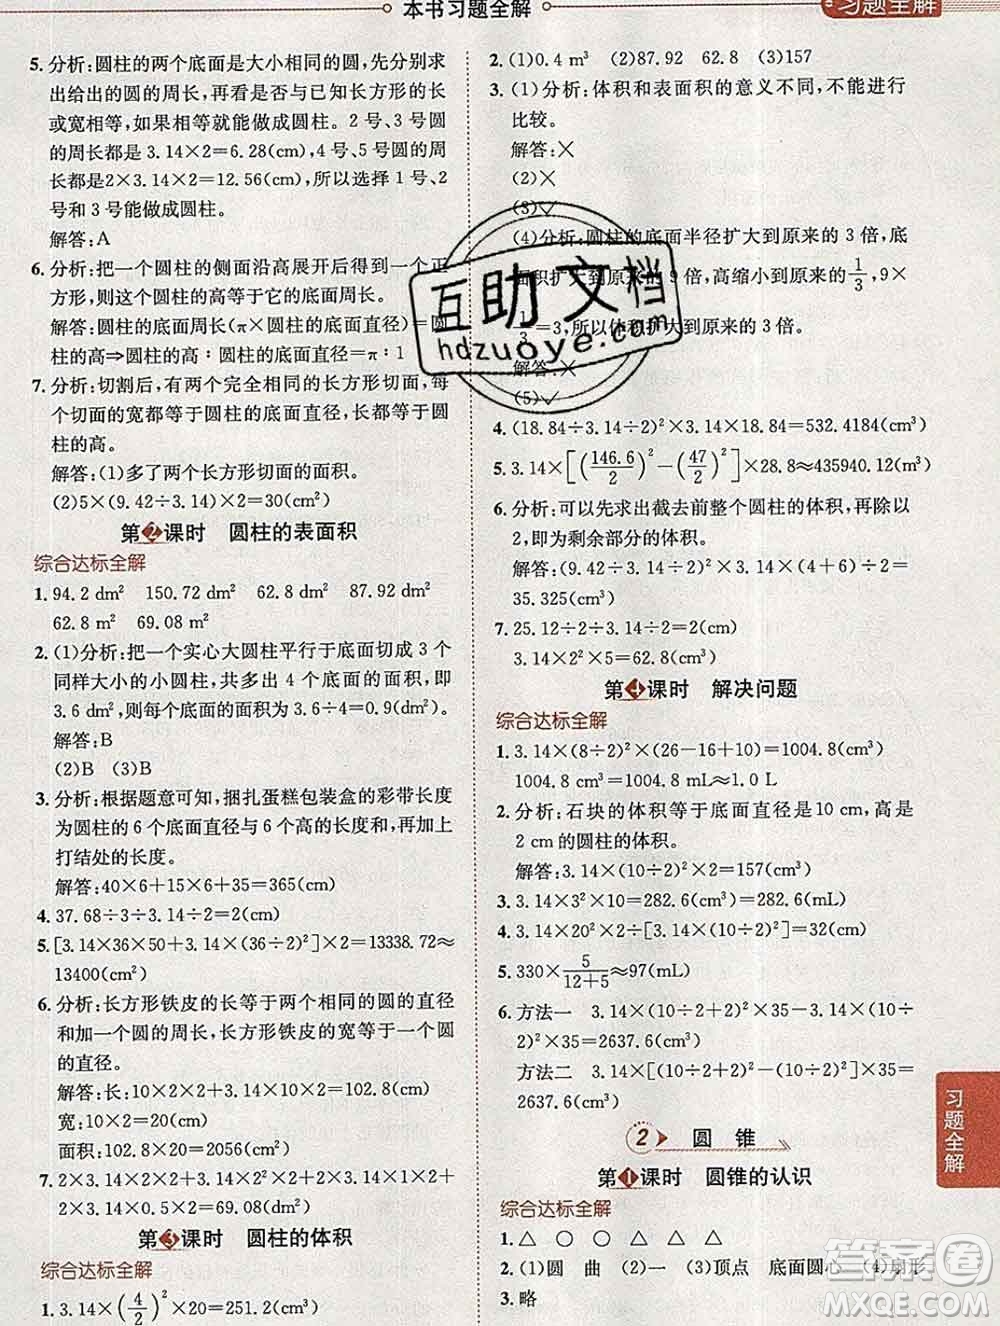 本书习题全解
习题全解
5. 分析:圆柱的两个底面是大小相同的圆,先分别求
出给出的圆的周长,再看是否与已知长方形的长
或宽相等,如果相等就能做成圆柱。2 号、3 号圆
的周长都是 3.14×2=6.28(cm),4 号、5 号圆的周
长都是 2×3.14×2=12.56(cm),所以选择 1 号、2
号和 3 号能做成圆柱。
解答:A
6. 分析:把一个圆柱的侧面沿高展开后得到一个正
方形,则这个圆柱的高等于它的底面周长。
解答:圆柱的底面周长(π×圆柱的底面直径)=圆
柱的高⇒圆柱的高∶圆柱的底面直径=π∶1
7. 分析:切割后,有两个完全相同的长方形切面,每
个切面的宽都等于圆柱的底面直径,长都等于圆
柱的高。
解答:(1)多了两个长方形切面的面积。
(2)5×(9.42÷3.14)×2=30(cm²)
第2课时 圆柱的表面积
综合达标全解
1. 94.2 dm² 150.72 dm² 62.8 dm² 87.92 dm²
62.8 m² 69.08 m²
2. (1)分析:把一个实心大圆柱平行于底面切成 3 个
同样大小的小圆柱,共多出 4 个底面的面积,即
3.6 dm²,则每个底面的面积为 3.6÷4=0.9(dm²)。
解答:B
(2)B (3)B
3. 分析:根据题意可知,捆扎蛋糕包装盒的彩带长度
为圆柱的 6 个底面直径与 6 个高的长度和,再加上
打结处的长度。
解答:40×6+15×6+35=365(cm)
4. 37.68÷3÷3.14÷2=2(cm)
5. [3.14×36×50+3.14×(36÷2)²]×2=13338.72≈
13400(cm²)
6. 分析:长方形铁皮的长等于两个相同的圆的直径
和加一个圆的周长,长方形铁皮的宽等于一个圆
的直径。
解答:长:10×2×2+3.14×10×2=102.8(cm)
宽:10×2=20(cm)
面积:102.8×20=2056(cm²)
7. 2×3.14×1.5×2+2×3.14×1×2+3.14×1.5²×2+2×
3.14×0.5×2=69.08(dm²)
第3课时 圆柱的体积
综合达标全解
1. 3.14×(4/2)²×20=251.2(cm³)
2. (1)0.4 m³ (2)87.92 62.8 (3)157
3. (1)分析:体积和表面积的意义不同,不能进行
比较。
解答:×
(2)×
(3)√
(4)分析:圆柱的底面半径扩大到原来的 3 倍,底
面积扩大到原来的 9 倍,高缩小到原来的 1/3,9×
1/3=3,所以体积扩大到原来的 3 倍。
解答:×
(5)√
4. (18.84÷3.14÷2)²×3.14×18.84=532.4184(cm³)
5. 3.14×[(146.6/2)²-(47/2)²]×28.8≈435940.12(m³)
6. 分析:可以先求出截去前整个圆柱的体积,再除以
2,即为剩余部分的体积。
解答:(9.42÷3.14÷2)²×3.14×(4+6)÷2=
35.325(cm³)
7. 25.12÷2÷3.14÷2=2(cm)
3.14×2²×5=62.8(cm³)
第4课时 解决问题
综合达标全解
1. 3.14×(8÷2)²×(26-16+10)=1004.8(cm³)
1004.8 cm³=1004.8 mL≈1.0 L
2. 分析:石块的体积等于底面直径是 10 cm,高是
2 cm 的圆柱的体积。
解答:3.14×(10÷2)²×2=157(cm³)
3. 3.14×3²×10=282.6(cm³)=282.6(mL)
4. 3.14×20²×2÷[3.14×(10÷2)²]=32(cm)
5. 330×5/(12+5)≈97(mL)
6. 方法一 3.14×(10÷2+2)²×22-3.14×(10÷
2)²×(22-2×5)=2637.6(cm³)
方法二 3.14×[(10÷2+2)²-(10÷2)²]×22+
3.14×(10÷2)²×2×5=
2637.6(cm³)
2 圆锥
第1课时 圆锥的认识
综合达标全解
1. △ ○ ○ △ △ △
2. (1)圆 曲 (2)一 (3)顶点 底面圆心 (4)扇形
3. 略
习题全解
互助文档
hdzuoye.com
答案圈
MXQE.COM